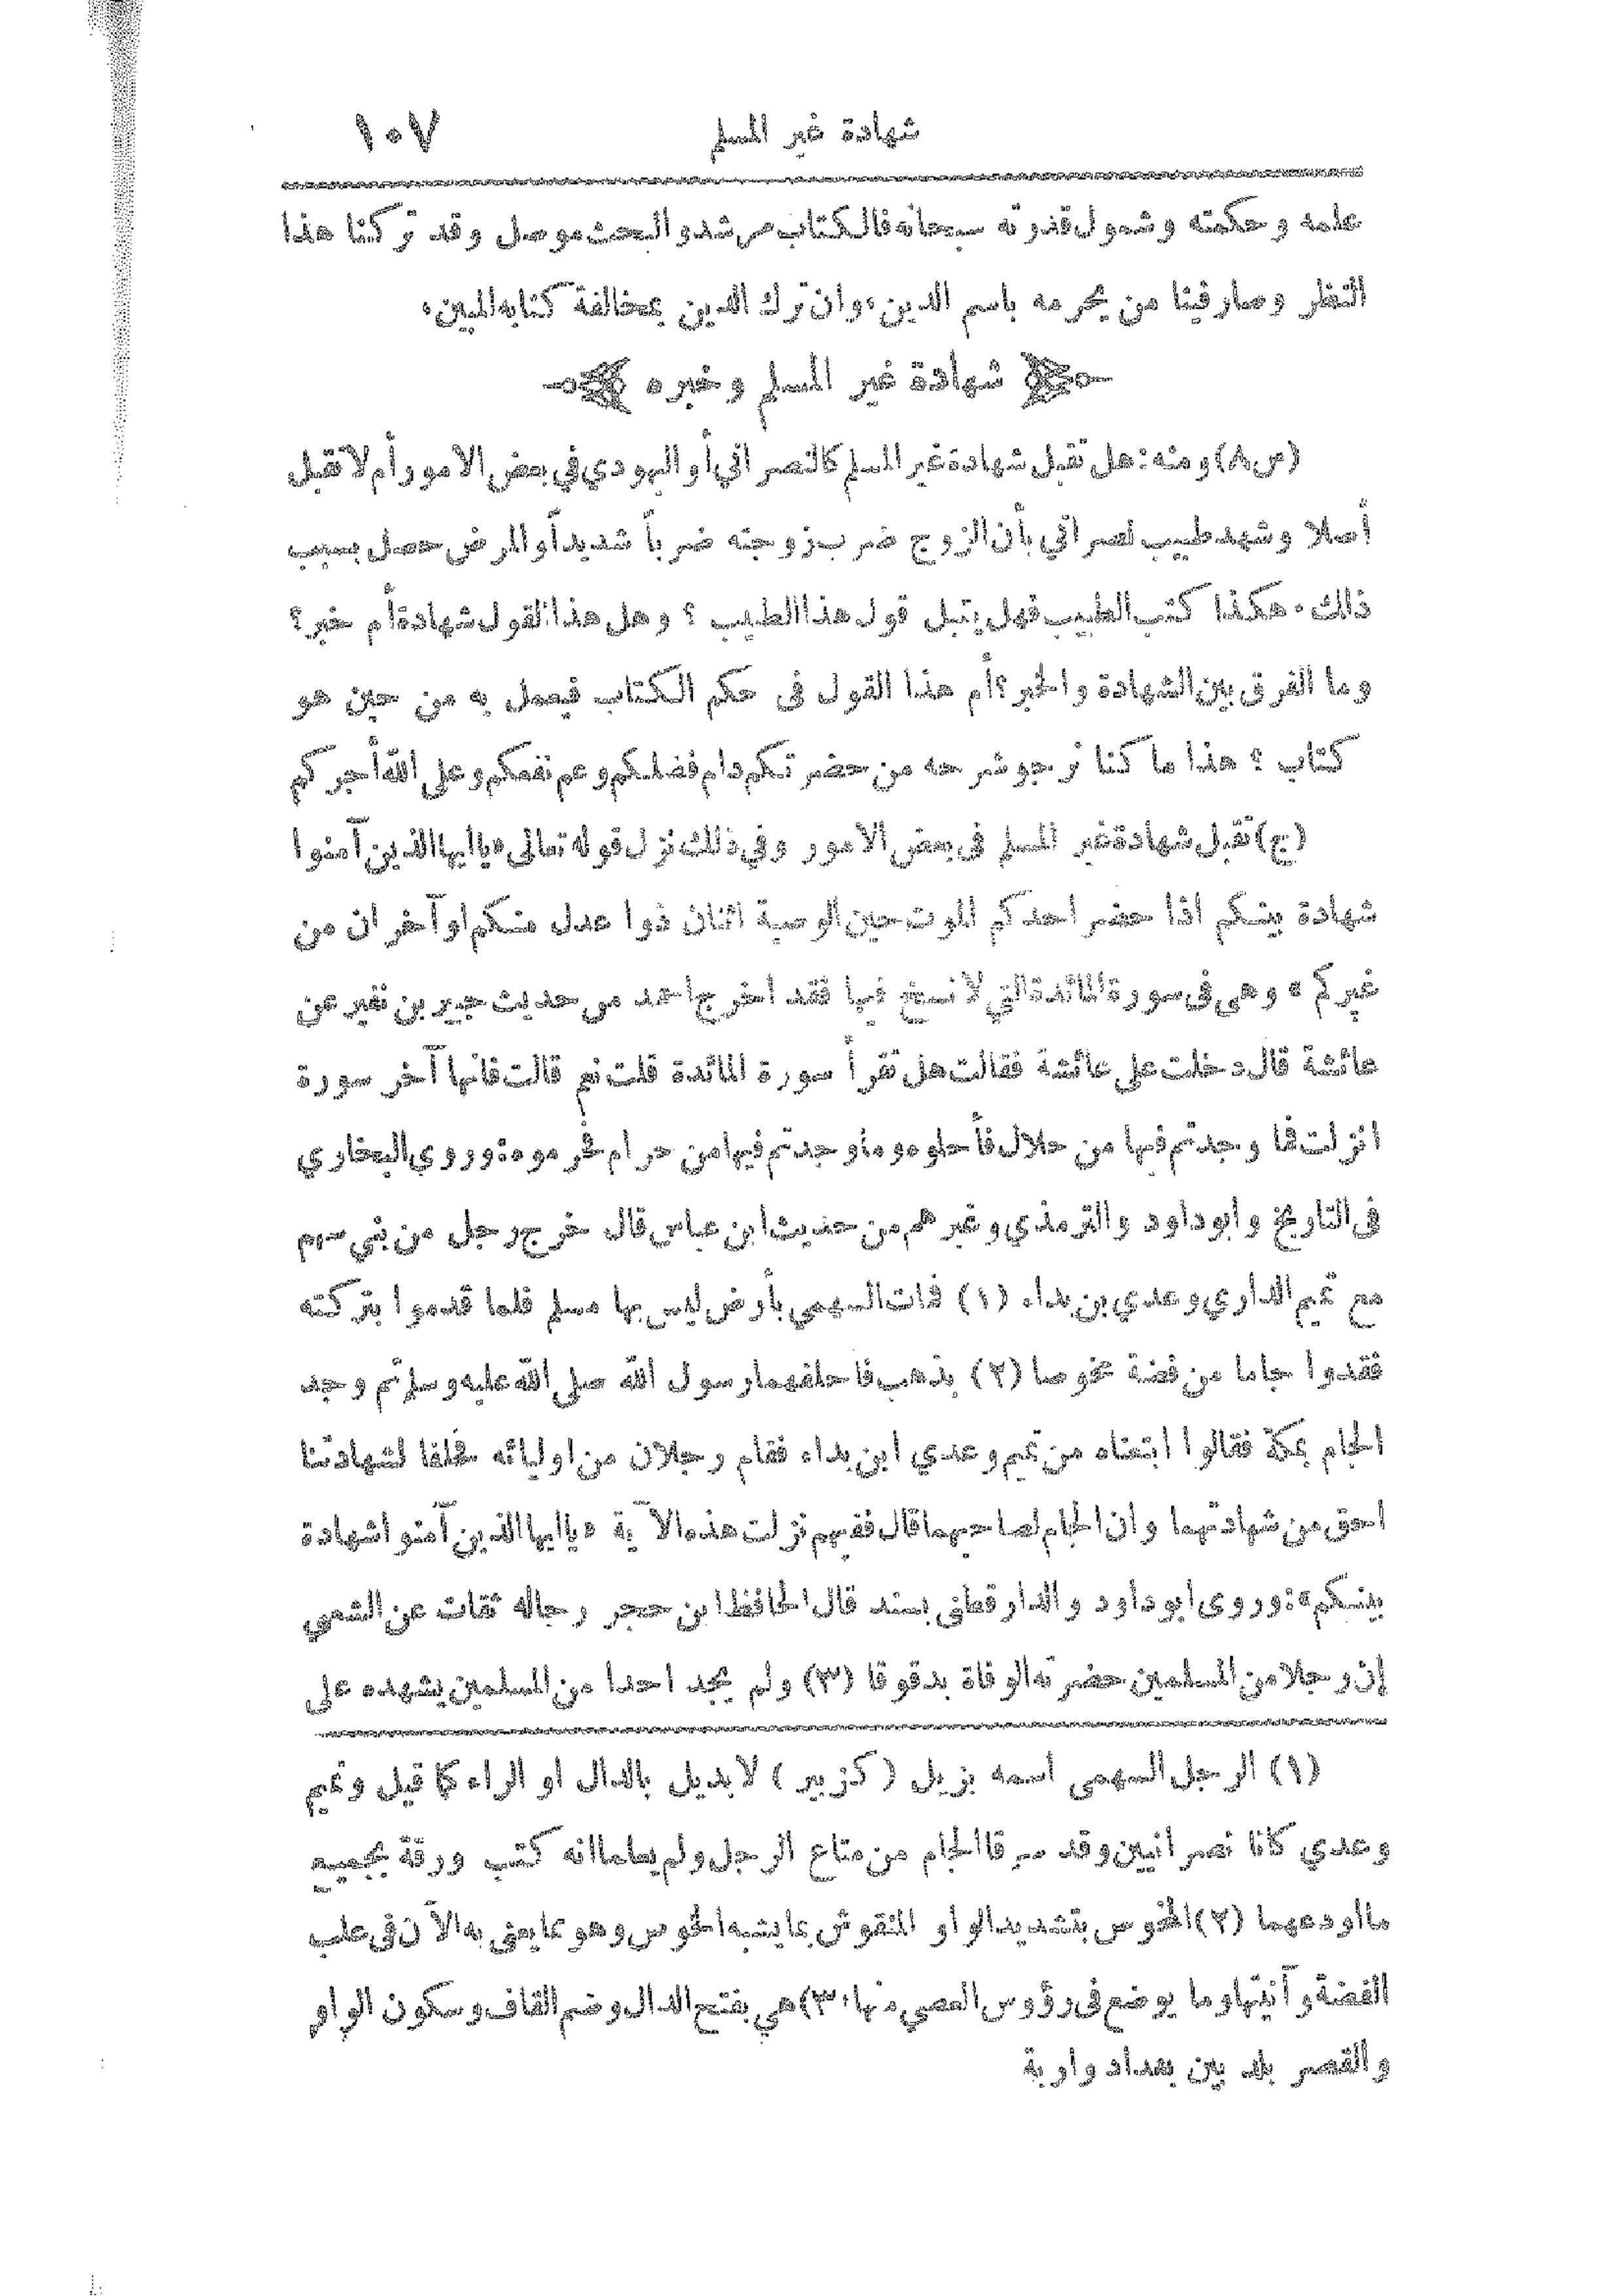 شهادة غير المسلم ١٠٧
علمه وحكمته وشمول قدرته سبحانه فالكتاب مرشد والبحث موصل وقد تركنا هذا
النظر وصار فينا من يحرمه باسم الدين، وان ترك الدين بمخالفة كتابه المبين،
شهادة غير المسلم وخبره
(س٨) ومنه: هل تقبل شهادة غير المسلم كالنصراني أو اليهودي في بعض الامور أم لا تقبل
أصلا وشهد طبيب نصراني بأن الزوج ضرب زوجته ضرباً شديداً والمرض حصل بسبب
ذلك. هكذا كتب الطبيب فهل يقبل قول هذا الطبيب ؟ وهل هذا القول شهادة أم خبر؟
وما الفرق بين الشهادة والخبر؟ أم هذا القول فى حكم الكتاب فيعمل به من حين هو
كتاب ؟ هذا ما كنا نرجو شرحه من حضرتكم دام فضلكم وعم نفعكم وعلى الله أجركم
(ج) تقبل شهادة غير المسلم فى بعض الامور وفي ذلك نزل قوله تعالى «ياايها الذين آمنوا
شهادة بينكم اذا حضر احدكم الموت حين الوصية اثنان ذوا عدل منكم او آخران من
غيركم » وهى فى سورة المائدة التي لا نسخ فيها فقد اخرج احمد من حديث جبير بن نفير عن
عائشة قال دخلت على عائشة فقالت هل تقرأ سورة المائدة قلت نعم قالت فانها آخر سورة
انزلت فما وجدتم فيها من حلال فأحلوه وما وجدتم فيها من حرام فحرموه: وروي البخاري
فى التاريخ وابو داود والترمذي وغيرهم من حديث ابن عباس قال خرج رجل من بني سهم
مع تميم الداري وعدي بن بداء (١) فمات السهمي بأرض ليس بها مسلم فلما قدموا بتركته
فقدوا جاما من فضة مخوصا (٢) بذهب فاحلفهما رسول الله صلى الله عليه وسلم ثم وجد
الجام بمكة فقالوا ابتعناه من تميم وعدي ابن بداء فقام رجلان من اوليائه فحلفا لشهادتنا
احق من شهادتهما وان الجام لصاحبهما قال ففيهم نزلت هذه الآية «ياايها الذين آمنوا شهادة
بينكم»: وروى ابو داود والدارقطنى بسند قال الحافظ ابن حجر رجاله ثقات عن الشعبي
إن رجلا من المسلمين حضرته الوفاة بدقوقا (٣) ولم يجد احدا من المسلمين يشهده على
(١) الرجل السهمى اسمه بزيل ( كزبير ) لا بديل بالدال او الراء كما قيل وتميم
وعدي كانا نصرانيين وقد سرقا الجام من متاع الرجل ولم يعلما انه كتب ورقة بجميع
ما اودعهما (٢) المخوص بتشديد الواو المنقوش بما يشبه الخوص وهو مما يعنى به الآن فى علب
الفضة وآنيتها وما يوضع فى رؤوس العصي منها (٣) هي بفتح الدال وضم القاف وسكون الواو
والقصر بلد بين بغداد واربة